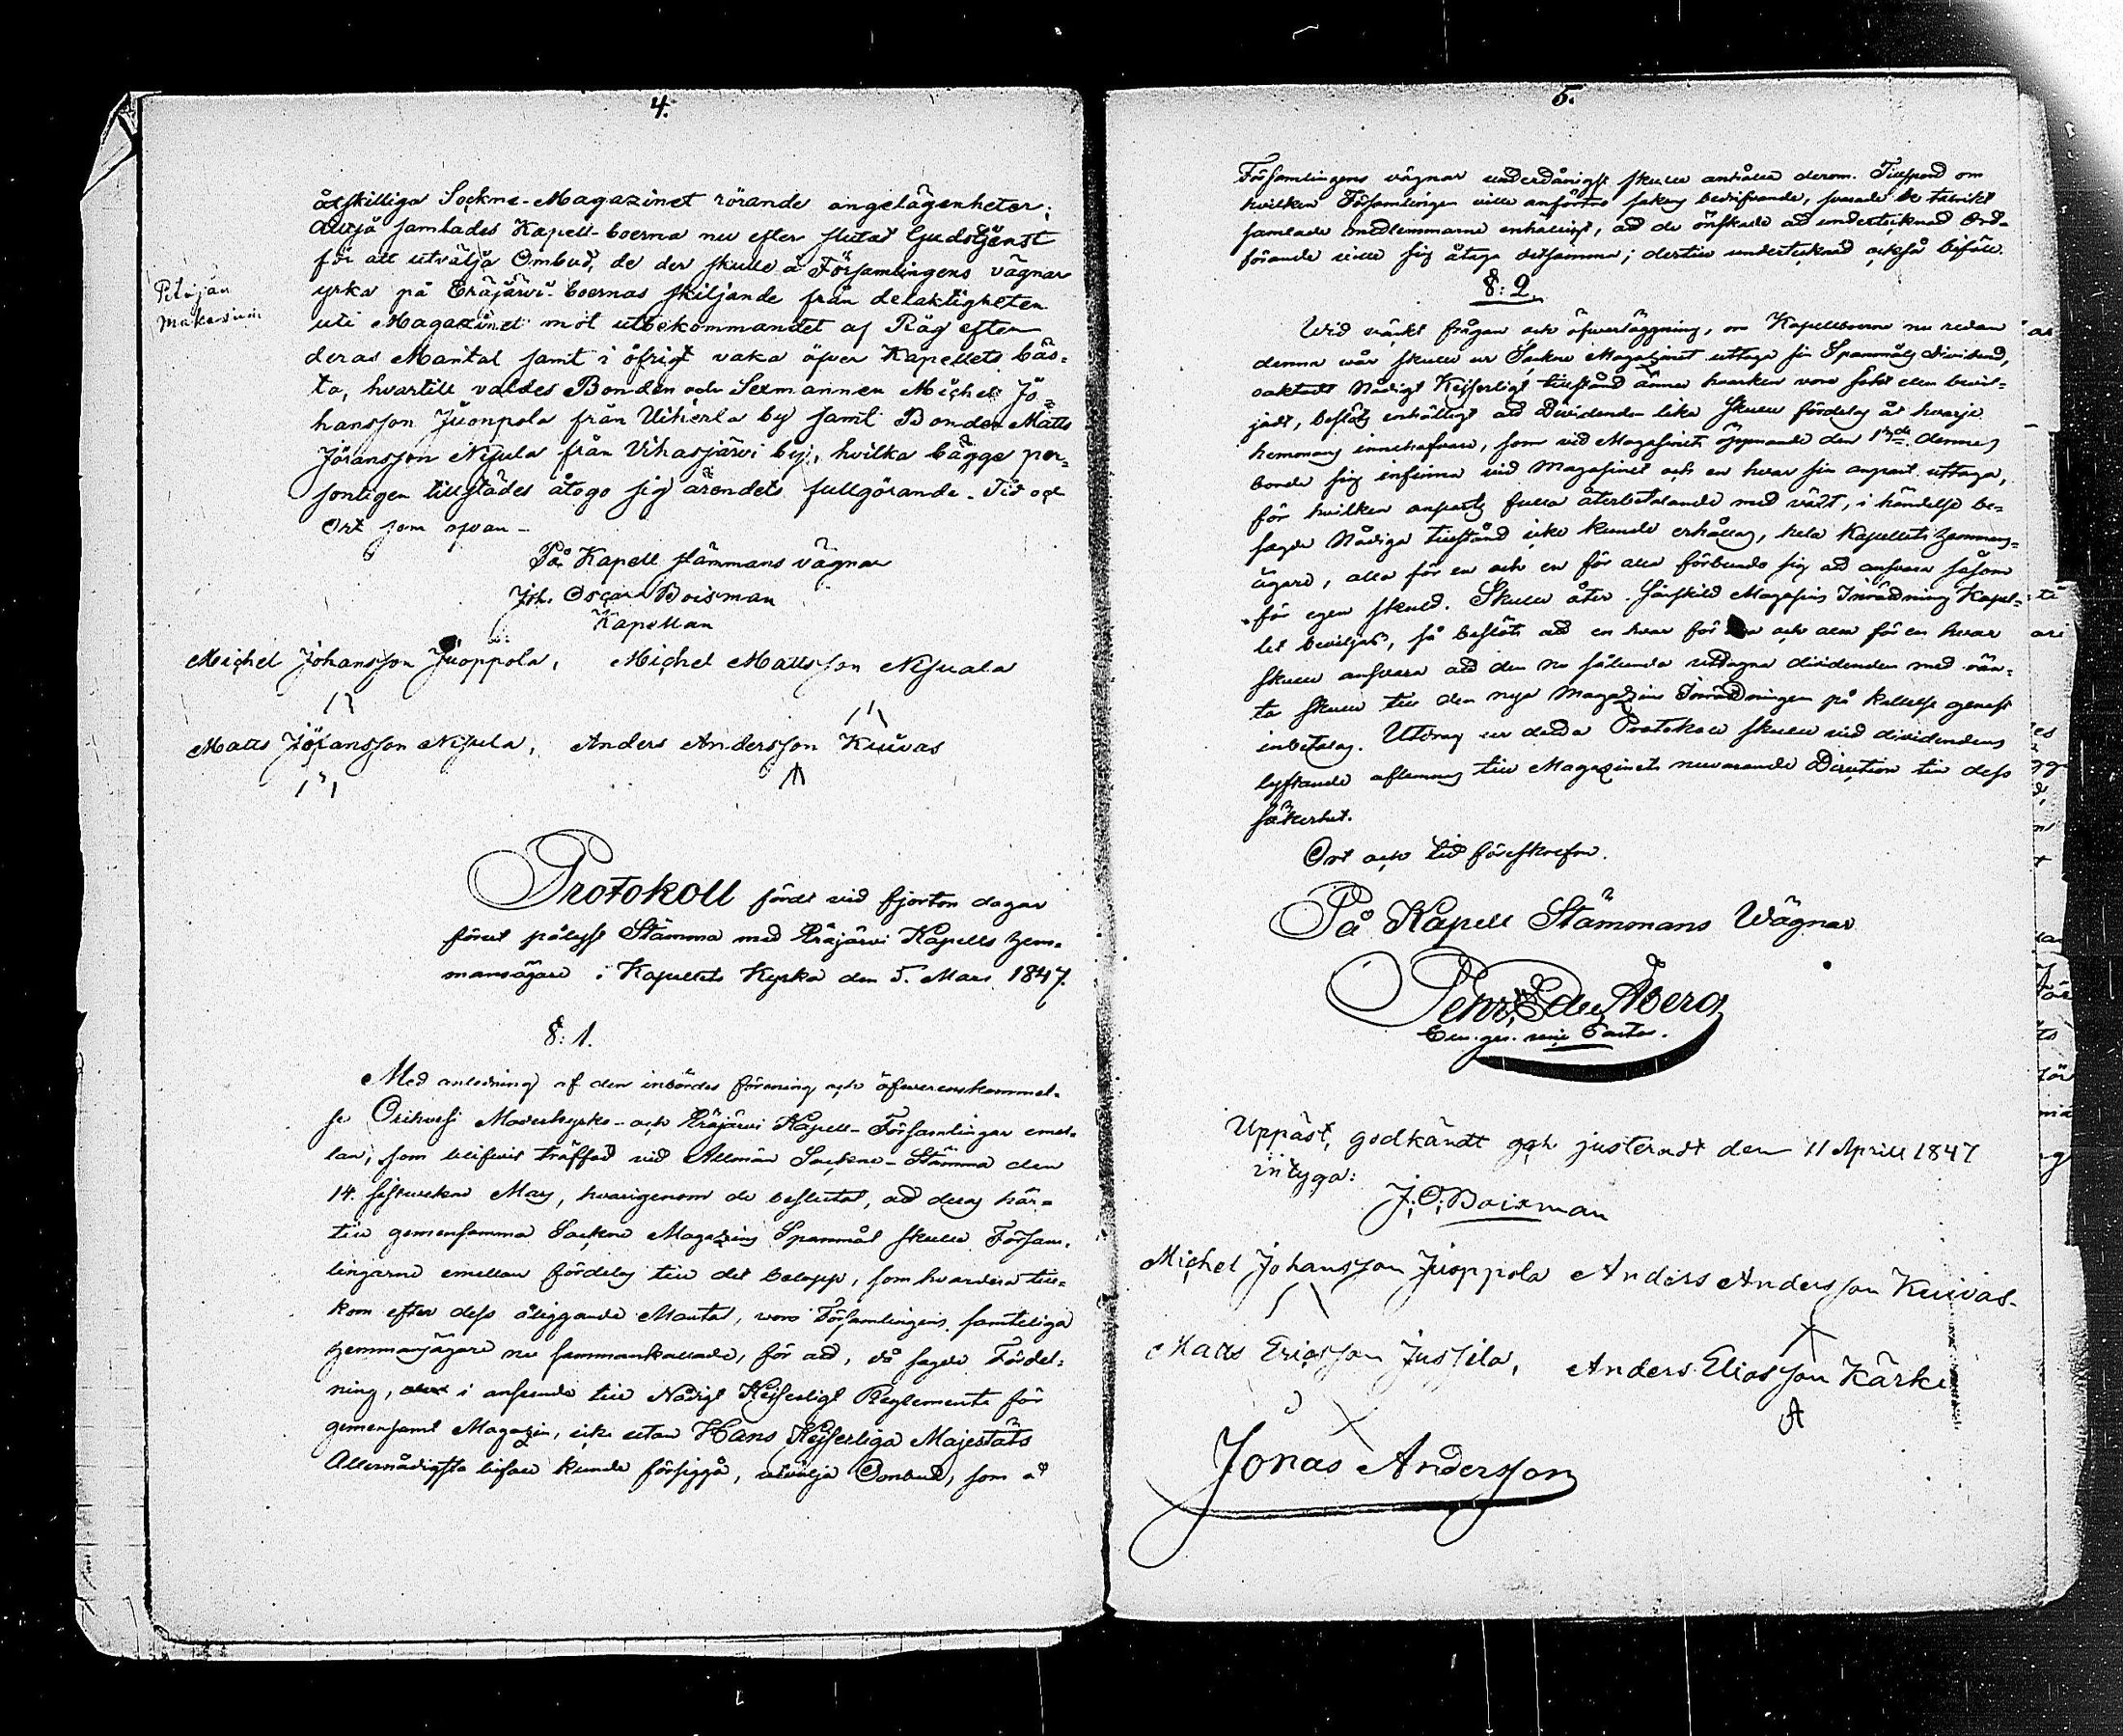 4.
åtskilliga Sockne-Magazinet rörande angelägenheter;
Altså samlades Kapell-boerna nu efter slutad Gudstjenst
för att utvälja Ombud, de der skulle å Församlingens vägnar
Pitäjän
makasiini
yrka på Eräjärvi-boernas skiljande från delaktigheten
uti Magazinet mot utbekommandet af Råg efter
deras Mantal samt i öfrigt vaka öfver Kapellets bäs-
ta, hvartill valdes Bonden och Sexmannen Michel Jo-
hansson Juonpola från Uiherla by samt Bonden Matts
Jöransson Nisula från Vihasjärvi by, hvilka bägge per-
sonligen tillstädes åtogo sig ärendets fullgörande. Tid och
Ort som ofvan –
På Kapell stämmans vägnar
Joh. Oscar Boisman
Kapellan
Michel Johansson Juoppola, Michel Mattsson Nisuala
Matts Jöransson Nisula, Anders Andersson Kuivas
Protokoll fördt vid fjorton dagar
förut pålyst Stämma med Eräjärvi Kapells hem-
mansägare i Kapellets Kyrka den 5. Mars 1847.
§: 1.
Med anledning af den inbördes förening och öfwerenskommel-
se Orihvesi Moderkyrko- och Eräjärvi Kapell-Församlingar emel-
lan, som blifvit träffad vid Allmän Sockne-Stämma den
14. sistwekne Maj, hvarigenom de beslutat, att deras här-
till gemensamma Sockne Magazins Spannmål skulle Försam-
lingarne emellan fördelas till det belopp, som hvardera till-
kom efter dess åliggande Mantal, woro Församlingens samteliga
hemmansägare nu sammankallade, för att, då sagde Fördel-
ning, i anseende till Nådigt Kejserligt Reglemente för
gemensamt Magazin, icke utan Hans Kejserliga Majestäts
Allernådigsta bifall kunde försiggå, utvälja Ombud, som å
5.
Församlingens vägnar underdånigst skulle anhålla derom. Tillspord om
hvilken Församlingen ville anförtro sakens bedrifvande, svarade de talrikt
samlade medlemmarne enhälligt, att de önskade att undertecknad Ord-
förande ville sig åtaga detsamma; dertill undertecknad också biföll.
§: 2.
Wid väckt frågan och öfverläggning, om Kapellboerne nu redan
denna vår skulle ur Sockne Magazinet uttaga sin Spannmåls Dividend,
oaktadt Nådigt Kejserligt tillstånd ännu hvarken vore sökt eller bevil-
jadt, beslöts enhälligt att Dividenden lika skulle fördelas åt hvarje
hemmans innehafvare, som vid Magasinets öppnande den 13de dennes
borde sig infinna vid Magasinet och en hvar sin anpart uttaga,
för hvilken anparts fulla återbetalande med växt, i händelse be-
sagde Nådiga tillstånd icke kunde erhållas, hela Kapellets hemmans-
ägare, alla för en och en för alla förbundo sig att ansvara såsom
för egen skuld. Skulle åter Särskild Magasins Inrättning Kapel-
let beviljas, så beslöts att en hvar för och alla för en hvar
skulle ansvara att den nu sålunda uttagna dividenden med rän-
ta skulle till den nya Magazins Inrättningen på kallelse genast
inbetalas. Utdrag ur detta Protokoll skulle vid dividendens
lyftande aflemnas till Magazinets nuvarande Direction till dess
säkerhet.
Ort och tid föreskrefne.
På Kapell Stämmans Wägnar
Pehr Åberg
Uppläst, godkändt och justeradt den 11 Aprill 1847
intyga:
J. O. Boisman
Michel Johansson Juoppola Anders Andersson Kuivas
Matts Ericsson Jussila, Anders Eliasson Kärki
Jonas Andersson